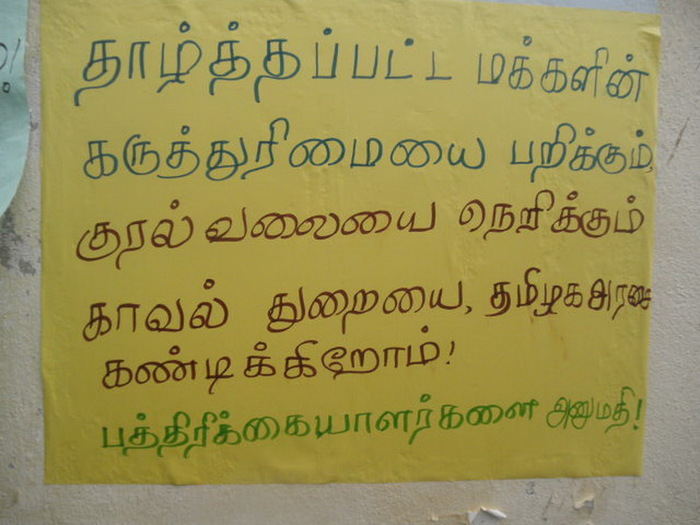 தாழ்த்தப்பட்ட மக்களின்
கருத்துரிமையை பறிக்கும்,
குரல்வலையை நெறிக்கும்
காவல் துறையை, தமிழகஅரசை
கண்டிக்கிறோம்!
பத்திரிக்கையாளர்களை அனுமதி!